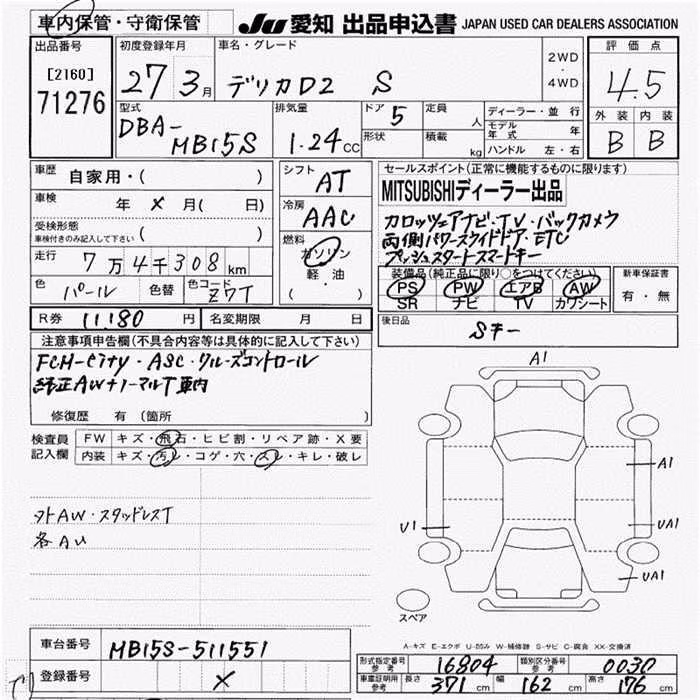 車内保管・守衛保管
JU 愛知 出品申込書 JAPAN USED CAR DEALERS ASSOCIATION
出品番号
[2160]
71276
初度登録年月
27 3月
車名・グレード
デリカD2 S
2WD
・
4WD
評価点
4.5
外装 内装
B B
型式
DBA-
MB15S
排気量
1.24cc
ドア 5
形状
定員 人
積載 kg
ディーラー・並 行
モデル年式 年
ハンドル 左・右
車歴 自家用・( )
車検 年 × 月( 日)
受検形態
車検付きのみ記入して下さい ( )
走行 7万4千308km
色 パール 色替 色コード Z7T
シフト AT
冷房 AAC
燃料
ガソリン
軽・油
( )
セールスポイント(正常に機能するものに限ります)
MITSUBISHIディーラー出品
カロッツェアナビ・TV・バックカメラ
両側パワースライドドア・ETC
プッシュスタートスマートキー
装備品(純正品に限り○をつけてください)
PS PW エアB AW
SR ナビ TV カワシート
新車保証書
有・無
R券 11,180 円 名変期限 月 日
後日品
Sキー
注意事項申告欄(不具合内容等は具体的に記入して下さい)
FCM-City・ASC・クルーズコントロール
純正AW+ノーマルT車内
修復歴 有(箇所 )
検査員
記入欄
FW キズ・飛石・ヒビ割・リペア跡・X要
内装 キズ・汚れ・コゲ・穴・スレ・キレ・破レ
外AW・スタッドレスT
各AU
A1
A1
U1
UA1
UA1
スペア
A-キズ E-エクボ U-凹み W-補修跡 S-サビ C-腐食 XX-交換済
車台番号 MB15S-511551
登録番号 ×
形式指定番号 参考 16804 類別区分番号 参考 0030
車庫証明用 参考 長さ 371cm 幅 162cm 高さ 176cm